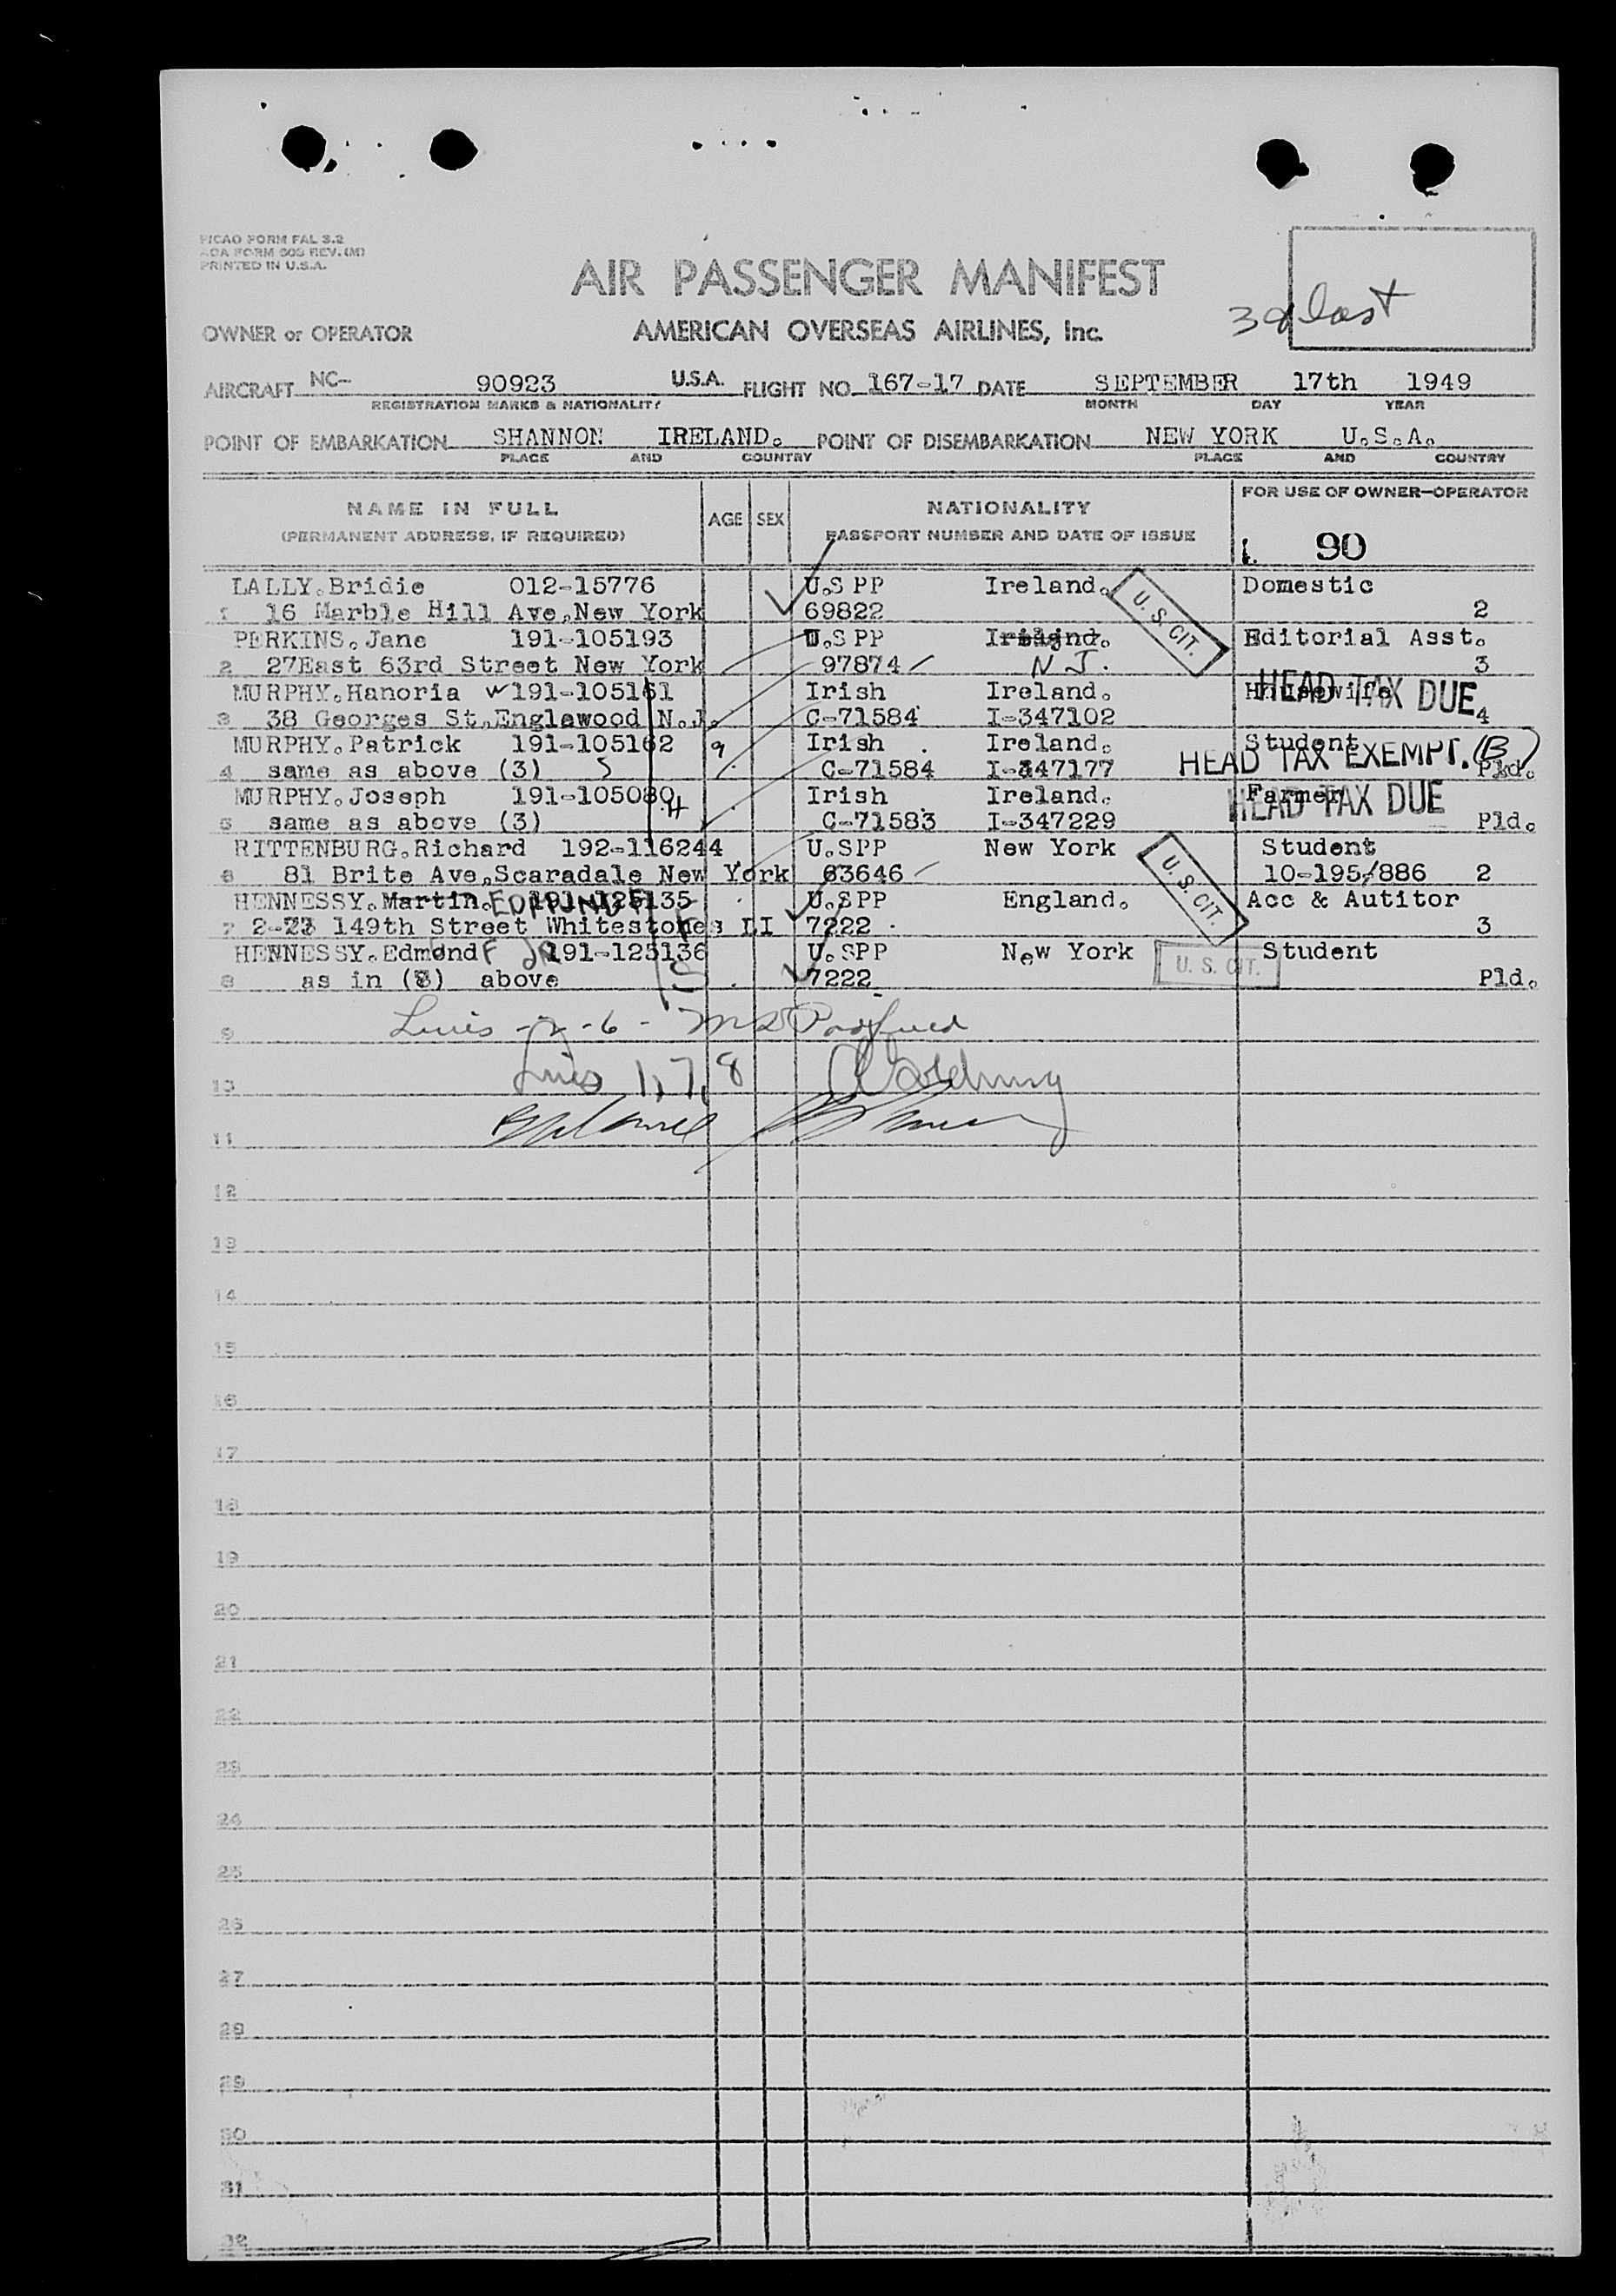 PICAO FORM FAL 3.2
AOA FORM 603 REV. (M)
PRINTED IN U.S.A.
AIR PASSENGER MANIFEST
39 last
OWNER or OPERATOR AMERICAN OVERSEAS AIRLINES, Inc.
AIRCRAFT NC- 90923 U.S.A. FLIGHT NO. 167-17 DATE SEPTEMBER 17th 1949
REGISTRATION MARKS & NATIONALITY MONTH DAY YEAR
POINT OF EMBARKATION SHANNON IRELAND. POINT OF DISEMBARKATION NEW YORK U.S.A.
PLACE AND COUNTRY PLACE AND COUNTRY
NAME IN FULL AGE SEX NATIONALITY FOR USE OF OWNER-OPERATOR
(PERMANENT ADDRESS, IF REQUIRED) PASSPORT NUMBER AND DATE OF ISSUE 90
LALLY.Bridie 012-15776 U.S PP Ireland. U. S. CIT. Domestic
1 16 Marble Hill Ave,New York 69822 2
PERKINS.Jane 191-105193 U.S PP Ireland. Editorial Asst.
2 27East 63rd Street New York 97874 N J. 3
MURPHY.Hanoria w 191-105161 Irish Ireland. Housewife HEAD TAX DUE
3 38 Georges St,Englewood N.J. C-71584 I-347102 4
MURPHY.Patrick 191-105162 9 Irish Ireland. Student
4 same as above (3) S C-71584 I-347177 HEAD TAX EXEMPT. (B) Pld.
MURPHY.Joseph 191-105080 H Irish Ireland. Farmer HEAD TAX DUE
5 same as above (3) C-71583 I-347229 Pld.
RITTENBURG.Richard 192-116244 U.SPP New York Student
6 81 Brite Ave,Scaradale New York 63646 U. S. CIT. 10-195/886 2
HENNESSY.Martin. EDMUND F 191-125135 U.SPP England. Acc & Autitor
7 2-23 149th Street Whitestone LI 7222 3
HENNESSY.Edmond F JR 191-125136 U.SPP New York U. S. CIT. Student
8 as in (8) above 7222 Pld.
9
10 Lines 1, 7, 8
11
12
13
14
15
16
17
18
19
20
21
22
23
24
25
26
27
28
29
30
31
32